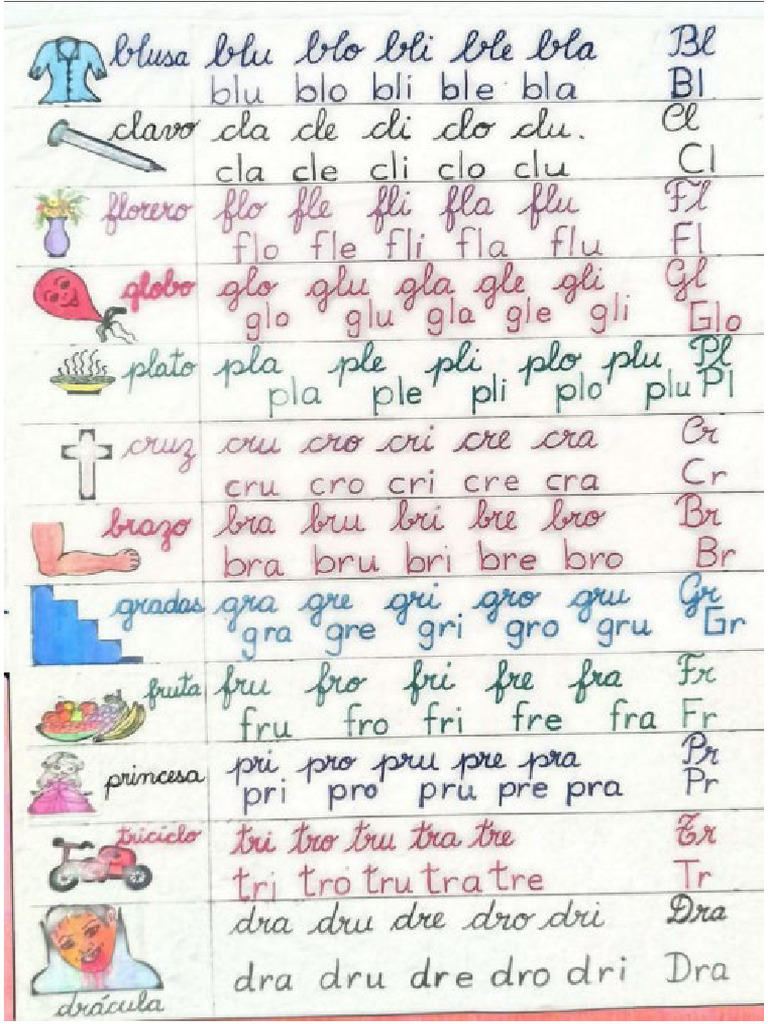 blusa blu blo bli ble bla Bl
blu blo bli ble bla Bl
clavo cla cle cli clo clu. Cl
cla cle cli clo clu Cl
florero flo fle fli fla flu Fl
flo fle fli fla flu Fl
globo glo glu gla gle gli Gl
glo glu gla gle gli Glo
plato pla ple pli plo plu Pl
pla ple pli plo plu Pl
cruz cru cro cri cre cra Cr
cru cro cri cre cra Cr
brazo bra bru bri bre bro Br
bra bru bri bre bro Br
gradas gra gre gri gro gru Gr
gra gre gri gro gru Gr
fruta fru fro fri fre fra Fr
fru fro fri fre fra Fr
princesa pri pro pru pre pra Pr
pri pro pru pre pra Pr
triciclo tri tro tru tra tre Tr
tri tro tru tra tre Tr
dra dru dre dro dri Dra
dra dru dre dro dri Dra
drácula